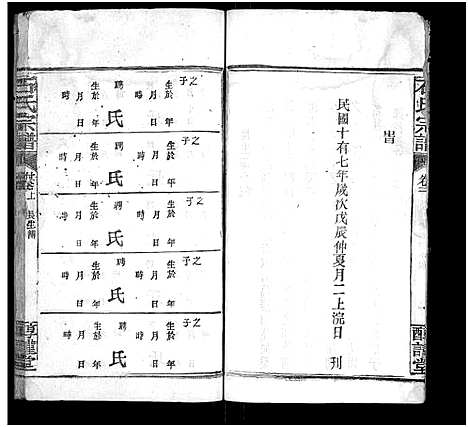 旹
民國十有七年歲次戊辰仲夏月二上浣日 刊
氏宗譜
之子
聘 氏
生於 年
月 日
時
之子
聘 氏
生於 年
月 日
時
之子
聘 氏
生於 年
月 日
時
之子
聘 氏
生於 年
月 日
時
之子
聘 氏
生於 年
月 日
時
氏宗譜
長生譜